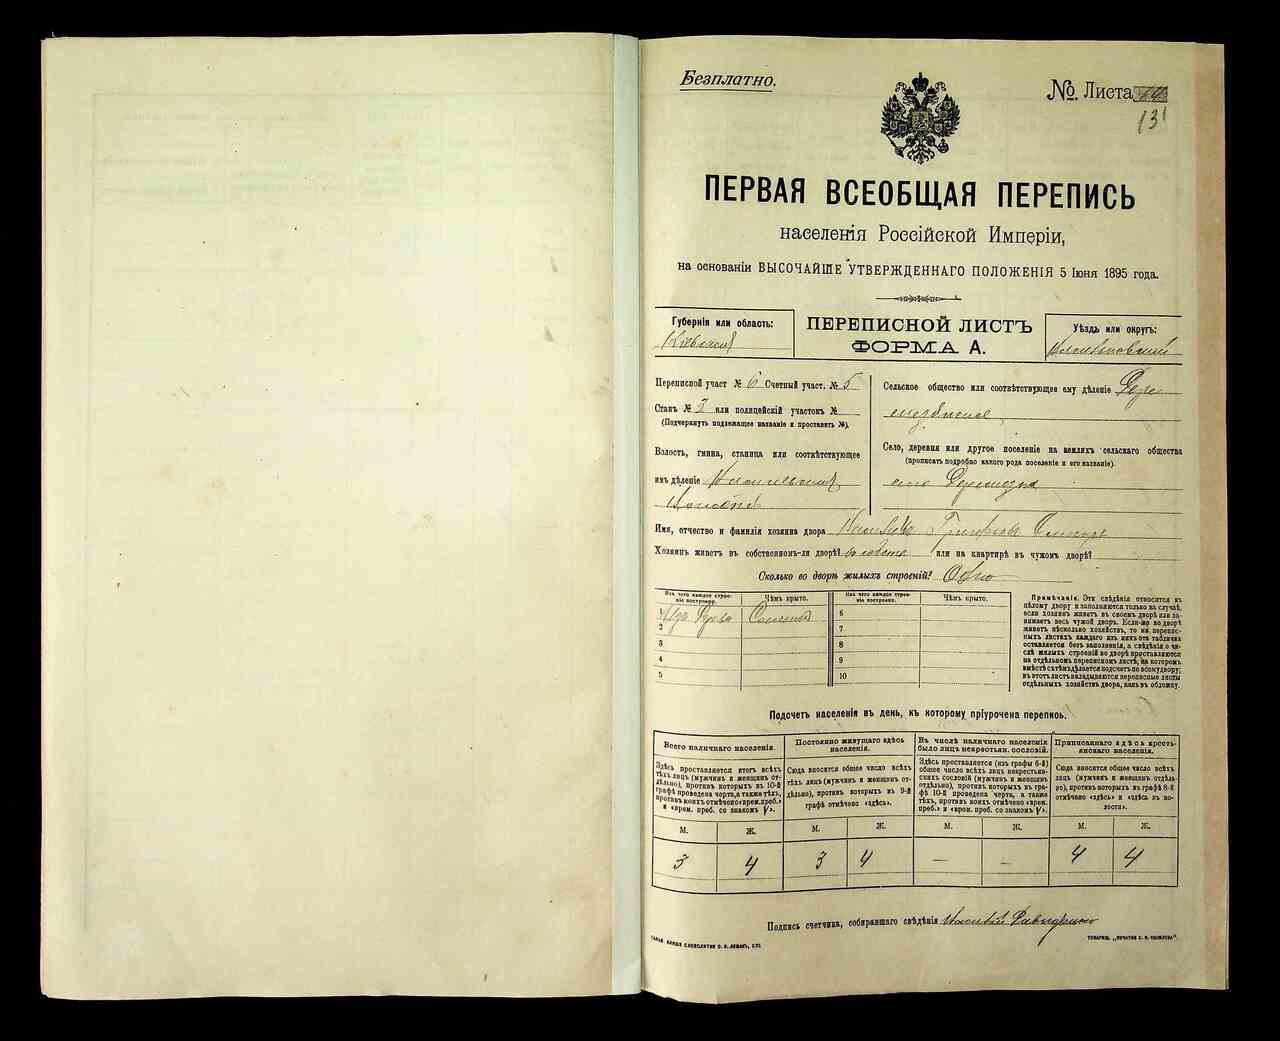 Безплатно.
№. Листа
13
ПЕРВАЯ ВСЕОБЩАЯ ПЕРЕПИСЬ
населенія Россійской Имперіи,
на основаніи ВЫСОЧАЙШЕ УТВЕРЖДЕННАГО ПОЛОЖЕНІЯ 5 Іюня 1895 года.
Губернія или область:
Кіевская
ПЕРЕПИСНОЙ ЛИСТЪ
ФОРМА А.
Уѣздъ или округъ:
Переписной участ № 6 Счетный участ. № 5
Станъ № 3 или полицейскій участокъ №
(Подчеркнуть подлежащее названіе и проставить №).
Волость, гмина, станица или соотвѣтствующее
имъ дѣленіе
Сельское общество или соотвѣтствующее ему дѣленіе
Село, деревня или другое поселеніе на земляхъ сельскаго общества
(прописать подробно какого рода поселеніе и его названіе).
село
Имя, отчество и фамилія хозяина двора
Хозяинъ живетъ въ собственномъ-ли дворѣ? или на квартирѣ въ чужомъ дворѣ?
Сколько во дворѣ жилыхъ строеній? Одно
Изъ чего каждое строеніе построено.
Чѣмъ крыто.
Изъ чего каждое строеніе построено.
Чѣмъ крыто.
1 Изъ дерева Соломой
2
3
4
5
6
7
8
9
10
Примѣчаніе. Эти свѣдѣнія относятся къ
цѣлому двору и заполняются только въ случаѣ,
если хозяинъ живетъ въ своемъ дворѣ или за-
нимаетъ весь чужой дворъ. Если-же во дворѣ
живетъ нѣсколько хозяйствъ, то на перепис-
ныхъ листахъ каждаго изъ нихъ эта табличка
оставляется безъ заполненія, а свѣдѣнія о чи-
слѣ жилыхъ строеній во дворѣ проставляются
на отдѣльномъ переписномъ листѣ, на которомъ
вмѣстѣ съ тѣмъ дѣлается подсчетъ по всему двору;
въ этотъ листъ вкладываются переписные листы
отдѣльныхъ хозяйствъ двора, какъ въ обложку.
Подсчетъ населенія въ день, къ которому пріурочена перепись.
Всего наличнаго населенія.
Здѣсь проставляется итогъ всѣхъ
тѣхъ лицъ (мужчинъ и женщинъ от-
дѣльно), противъ которыхъ въ 10-й
графѣ проведена черта, а также тѣхъ,
противъ коихъ отмѣчено «врем. преб.»
и «врем. преб. со знакомъ V».
Постоянно живущаго здѣсь
населенія.
Сюда вносится общее число всѣхъ
тѣхъ лицъ (мужчинъ и женщинъ от-
дѣльно), противъ которыхъ въ 9-й
графѣ отмѣчено «здѣсь».
Въ числѣ наличнаго населенія
было лицъ некрестьян. сословій.
Здѣсь проставляется (изъ графы 6-й)
общее число всѣхъ лицъ некрестьян-
скихъ сословій (мужчинъ и женщинъ
отдѣльно), противъ которыхъ въ гра-
фѣ 10-й проведена черта, а также
тѣхъ, противъ коихъ отмѣчено «врем.
преб.» и «врем. преб. со знакомъ V».
Приписаннаго здѣсь кресть-
янскаго населенія.
Сюда вносится общее число всѣхъ
лицъ (мужчинъ и женщинъ отдѣль-
но), противъ которыхъ въ графѣ 8-й
отмѣчено «здѣсь» и «здѣсь въ во-
лости».
М. Ж. М. Ж. М. Ж. М. Ж.
3 4 3 4 – – 4 4
Подпись счетчика, собиравшаго свѣдѣнія
СЛОВОЛИТНИ О. И. ЛЕМАНЪ, СПБ.
ТОВАРИЩ. „ПЕЧАТНЯ С. П. ЯКОВЛЕВА“.